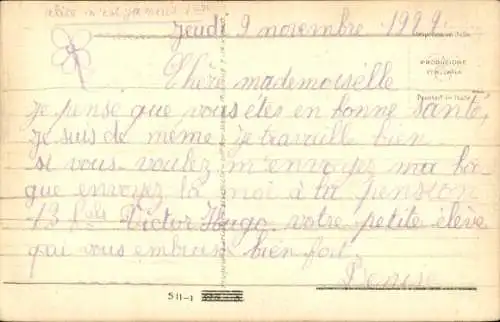 Jeudi 9 novembre 1929
PRODUZIONE
ITALIANA
Chère mademoiselle
je pense que vous êtes en bonne santé,
je suis de même je travaille bien
si vous voulez m'envoyez ma ba
gue envoyez là moi à la pension
13 Rue Victor Hugo. votre petite élève
qui vous embrasse bien fort.
Denise
511-1